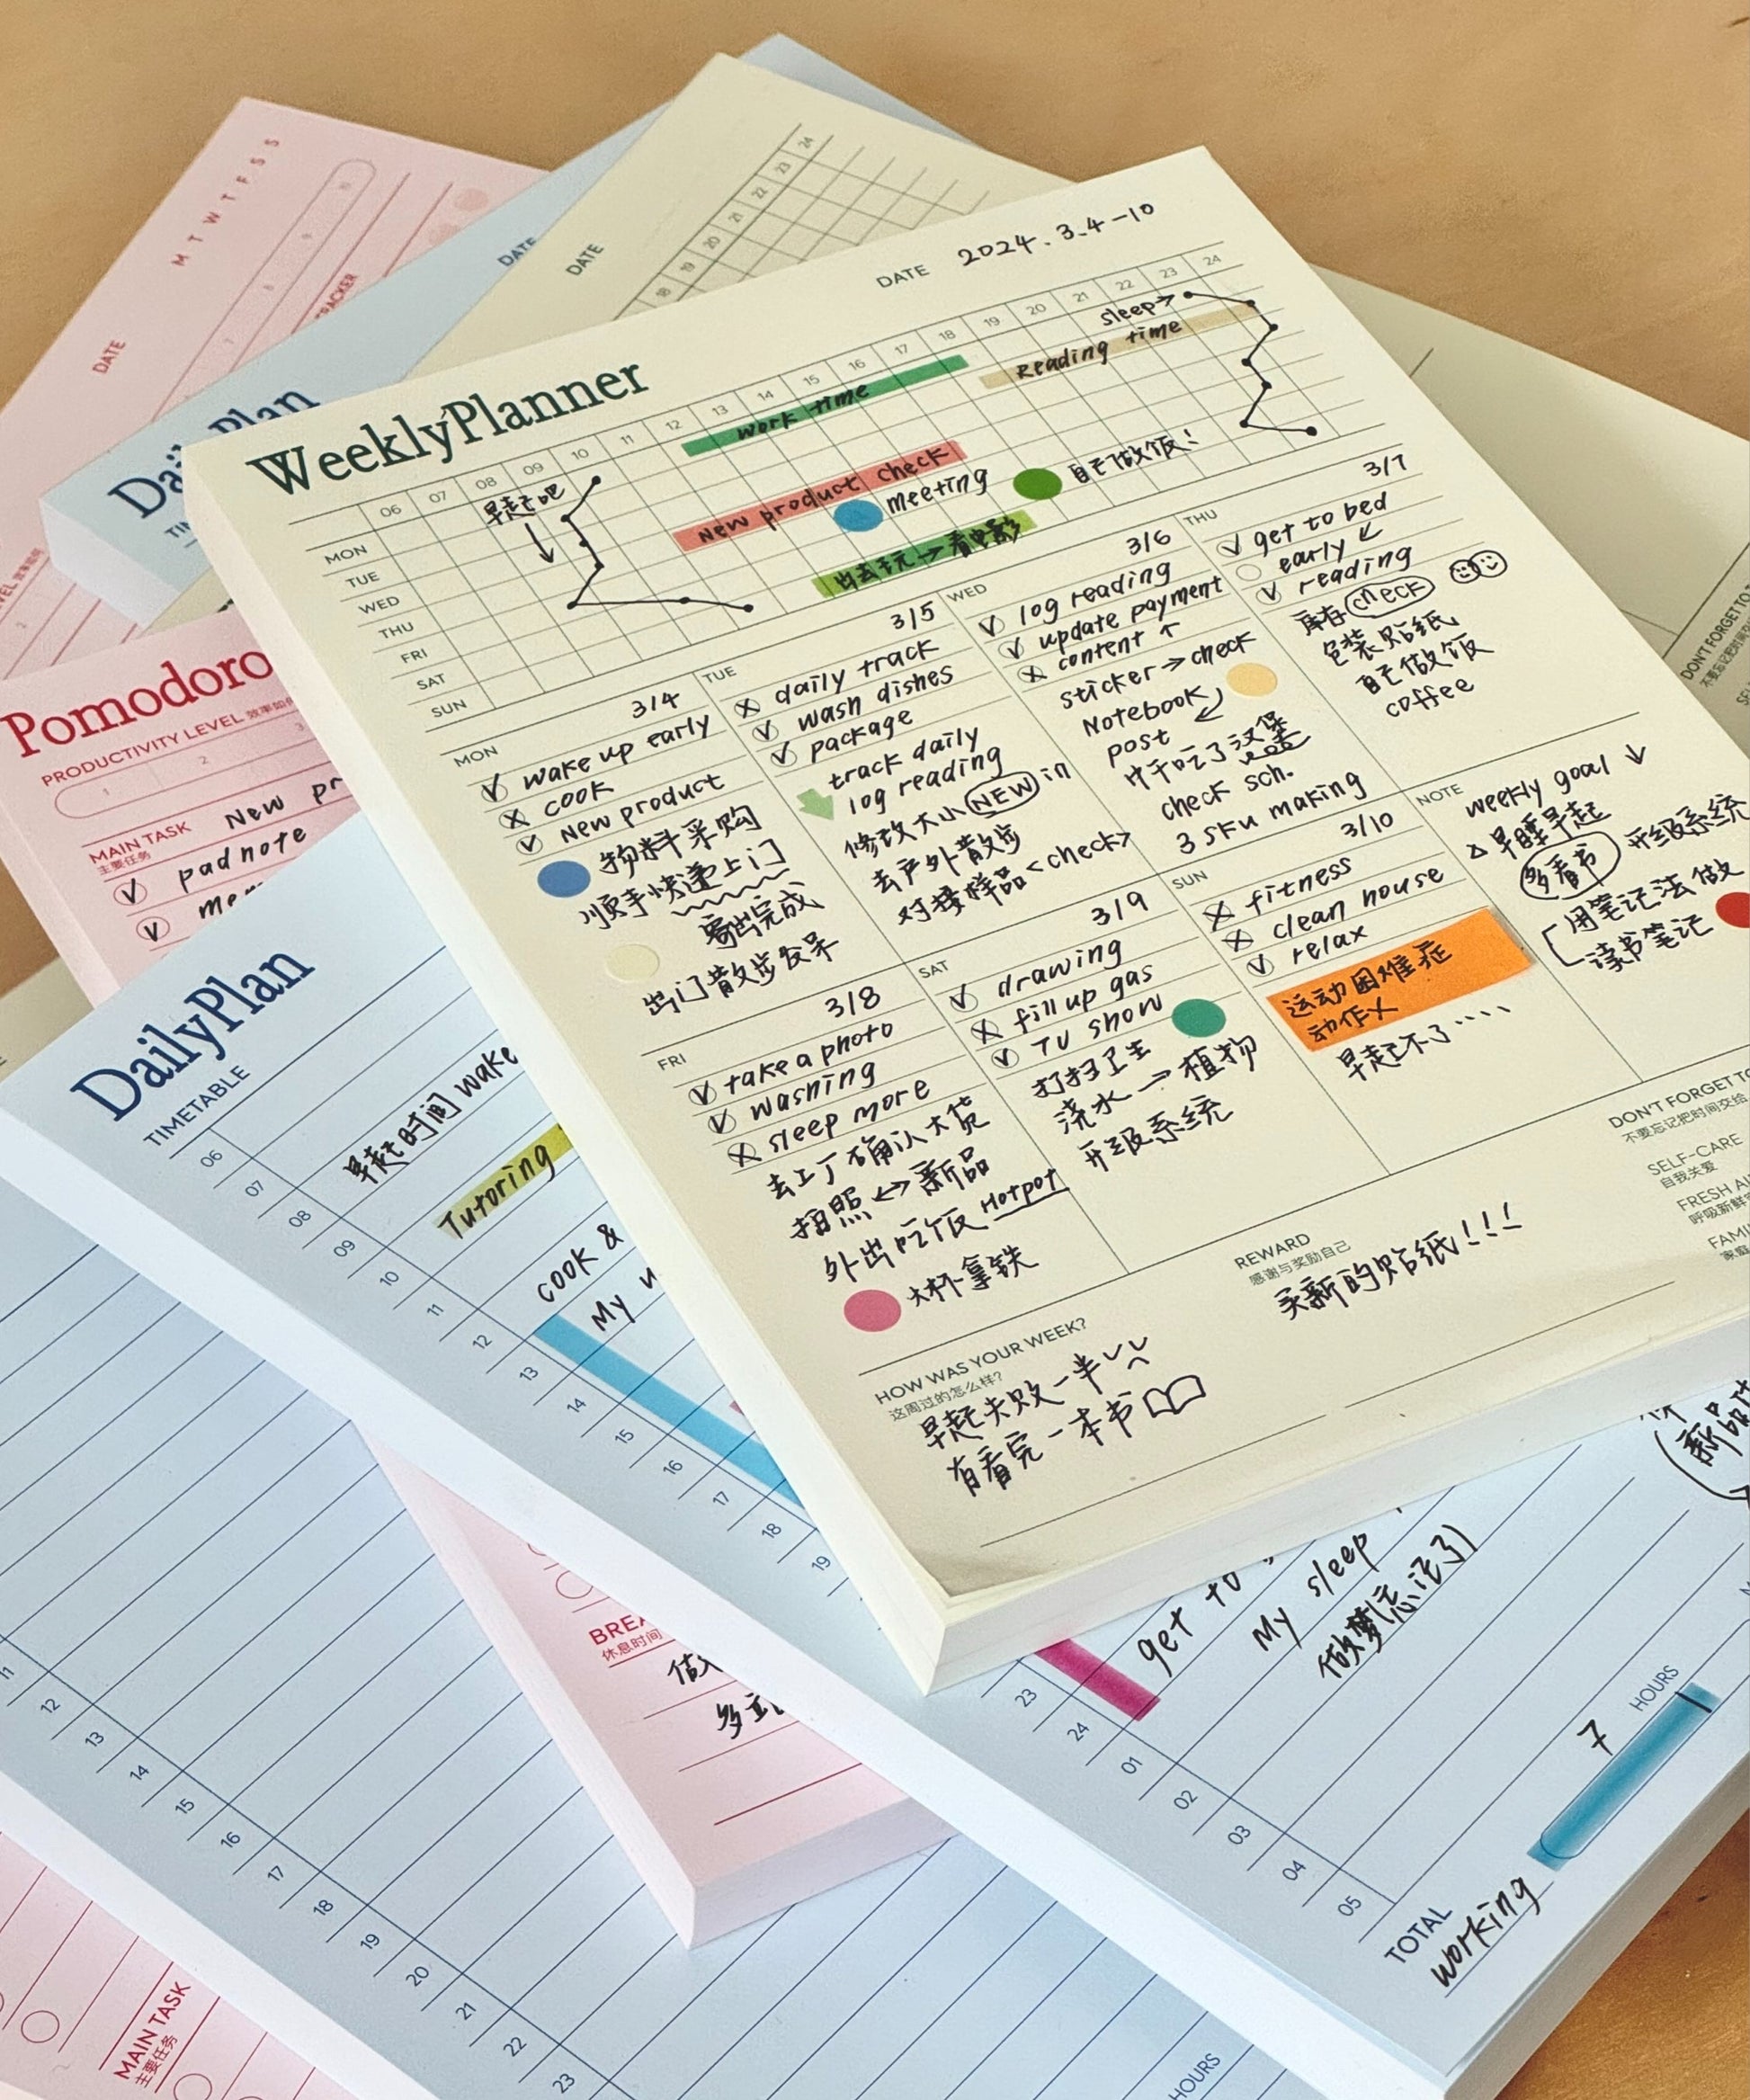 WeeklyPlanner
DATE 2024.3.4-10
06 07 08 09 10 11 12 13 14 15 16 17 18 19 20 21 22 23 24
MON
TUE
WED
THU
FRI
SAT
SUN
早起吧
work time
Reading time
sleep→
New product check
meeting
自己做饭!
出去玩→看电影
MON 3/4
wake up early
cook
New product
物料采购
顺手快递上门
寄出完成
出门散步发呆
TUE 3/5
daily track
wash dishes
package
track daily
log reading
修改大小 NEW in
去户外散步
对接样品<check>
WED 3/6
log reading
update payment
content ↑
sticker→check
Notebook
post
中午吃了汉堡
check sch.
3 sku making
THU 3/7
get to bed
early
reading
库存 check
包装贴纸
自己做饭
coffee
FRI 3/8
take a photo
washing
sleep more
去工厂确认大货
拍照↔新品
外出吃饭 Hotpot
大杯拿铁
SAT 3/9
drawing
fill up gas
TV show
打扫卫生
浇水→植物
升级系统
SUN 3/10
fitness
clean house
relax
运动困难症
动作乂
早起不了····
NOTE
weekly goal ↓
△早睡早起
多看书 升级系统
用笔记法做
读书笔记
HOW WAS YOUR WEEK?
这周过的怎么样?
早起失败一半
有看完一本书
REWARD
感谢与奖励自己
买新的贴纸!!!
DON'T FORGET TO
不要忘记把时间交给
SELF-CARE
自我关爱
FRESH AI
呼吸新鲜
FAMI
家庭
DailyPlan
TIMETABLE
06
07
08
09
10
11
12
13
14
15
16
17
18
19
早起时间 wake
Tutoring
cook &
My
get to
My sleep
做梦(忘记了)
新品
23
24
01
02
03
04
05
7 HOURS
TOTAL
working
Pomodoro
PRODUCTIVITY LEVEL
1 2 3
MAIN TASK New pr
主要任务
pad note
me
BREA
休息时间
做
多
M T W T F S S
DATE
DATE
DATE
18 19 20 21 22 23 24
DON'T FORGET TO
11
12
13
14
15
16
17
18
19
20
21
22
23
HOURS
MAIN TASK
主要任务